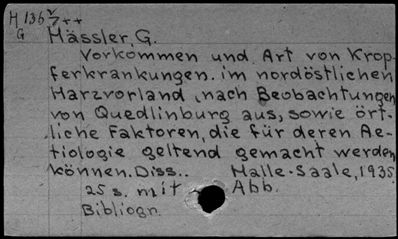 H 136 2/7++
G Hässler, G.
Vorkommen und Art von Krop-
ferkrankungen im nordöstlichen
Harzvorland, nach Beobachtungen
von Quedlinburg aus, sowie ört-
liche Faktoren, die für deren Ae-
tiologie geltend gemacht werden
können. Diss.. Halle-Saale, 1935
25 s. mit Abb.
Bibliogr.